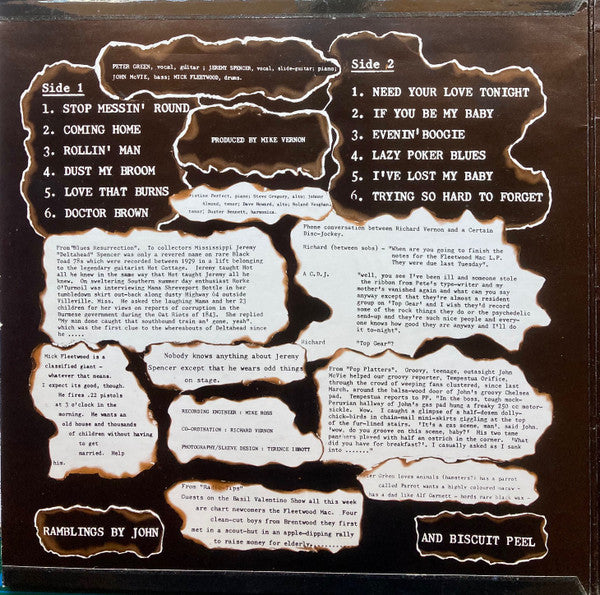 PETER GREEN, vocal, guitar ; JEREMY SPENCER, vocal, slide-guitar; piano;
JOHN McVIE, bass; MICK FLEETWOOD, drums.
Side 1
1. STOP MESSIN' ROUND
2. COMING HOME
3. ROLLIN' MAN
4. DUST MY BROOM
5. LOVE THAT BURNS
6. DOCTOR BROWN
PRODUCED BY MIKE VERNON
Side 2
1. NEED YOUR LOVE TONIGHT
2. IF YOU BE MY BABY
3. EVENIN' BOOGIE
4. LAZY POKER BLUES
5. I'VE LOST MY BABY
6. TRYING SO HARD TO FORGET
Perfect, piano; Steve Gregory, alto; Johnny
Almond, tenor; Dave Howard, alto; Roland Vaughan,
tenor; Duster Bennett, harmonica.
From "Blues Resurrection". To collectors Mississippi Jeremy
"Deltahead" Spencer was only a revered name on rare Black
Toad 78s which were recorded between 1929 in a lift belonging
to the legendary guitarist Hot Cottage. Jeremy taught Hot
all he knew in the same way that Hot taught Jeremy all he
knew. On sweltering Southern summer day enthusiast Rorke
O'Turmoil was interviewing Mama Shreveport Bottle in her
tumbledown skirt out-back along dusty Highway 04 outside
Villerville, Miss. He asked the laughing Mama and her 23
children for her views on reports of corruption in the
Burmese government during the Oat Riots of 1843. She replied
"My man done caught that southbound train an' gone, yeah",
which was the first clue to the whereabouts of Deltahead since
he .....
Phone conversation between Richard Vernon and a Certain
Disc-Jockey.
Richard (between sobs) - "When are you going to finish the
notes for the Fleetwood Mac L.P.
They were due last Tuesday".
A C.D.J. "well, you see I've been ill and someone stole
the ribbon from Pete's type-writer and my
mother's vanished again and what can you say
anyway except that they're almost a resident
group on 'Top Gear' and I wish they'd record
some of the rock things they do or the psychedelic
send-up and they're such nice people and every-
one knows how good they are anyway and I'll do
it to-night".
Richard "Top Gear"?
Mick Fleetwood is a
classified giant -
whatever that means.
I expect its good, though.
He fires .22 pistols
at 3 o'clock in the
morning. He wants an
old house and thousands
of children without having
to get
married. Help
him.
Nobody knows anything about Jeremy
Spencer except that he wears odd things
on stage.
RECORDING ENGINEER : MIKE ROSS
CO-ORDINATION : RICHARD VERNON
PHOTOGRAPHY/SLEEVE DESIGN : TERENCE IBBOTT
From "Pop Platters". Groovy, teenage, outasight John
McVie helped our groovy reporter, Tempestua Orifice,
through the crowd of weeping fans clustered, since last
March, around the balsa-wood door of John's groovy Chelsea
pad. Tempestua reports to PP. "In the boss, tough mock-
Peruvian hallway of John's gas pad hung a freaky 250 cc motor-
sickle. Wow. I caught a glimpse of a half-dozen dolly-
chick-birds in chain-mail mini-skirts giggling at the top
of the fur-lined stairs. 'It's a gas scene, man'. said John.
'wow, do you groove on this scene, baby?' His two tame
panthers played with half an ostrich in the corner. 'What
did you have for breakfast?'. I casually asked as I sank
into ......."
From "Radio-Tips"
Guests on the Basil Valentino Show all this week
are chart newcomers the Fleetwood Mac. Four
clean-cut boys from Brentwood they first
met in a scout-hut in an apple-dipping rally
to raise money for elderly...........
Green loves animals (hamsters?): has a parrot
called Parrot wants a highly coloured macaw -
has a dad like Alf Garnett - hords rare black wax -
RAMBLINGS BY JOHN
AND BISCUIT PEEL